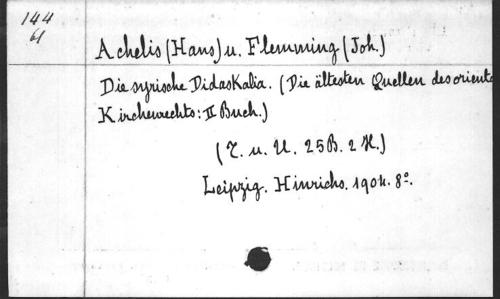 144
61
Achelis (Hans) u. Flemming (Joh.)
Die syrische Didaskalia. (Die ältesten Quellen des orienta
Kirchenrechts: II Buch.)
(T. u. U. 25B. 2 H.)
Leipzig. Hinrichs. 1904. 8º.